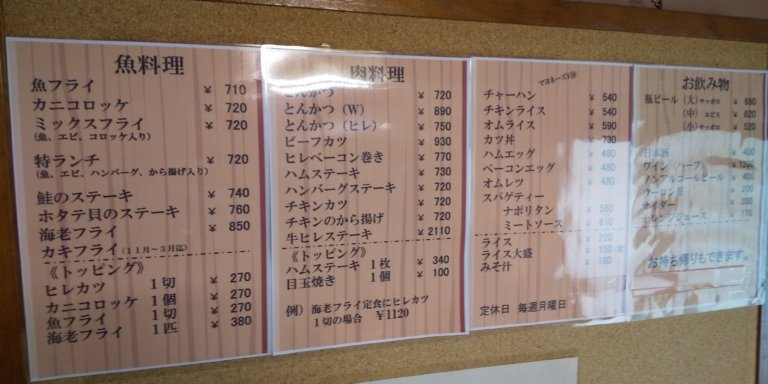 魚料理
魚フライ ¥ 710
カニコロッケ ¥ 720
ミックスフライ ¥ 720
(魚、エビ、コロッケ入り)
特ランチ ¥ 720
(魚、エビ、ハンバーグ、から揚げ入り)
鮭のステーキ ¥ 740
ホタテ貝のステーキ ¥ 760
海老フライ ¥ 850
カキフライ(11月〜3月迄)
《トッピング》
ヒレカツ 1切 ¥ 270
カニコロッケ 1個 ¥ 270
魚フライ 1切 ¥ 270
海老フライ 1匹 ¥ 380
肉料理
とんかつ ¥ 720
とんかつ(W) ¥ 890
とんかつ(ヒレ) ¥ 750
ビーフカツ ¥ 930
ヒレベーコン巻き ¥ 770
ハムステーキ ¥ 730
ハンバーグステーキ ¥ 720
チキンカツ ¥ 720
チキンのから揚げ ¥ 720
牛ヒレステーキ ¥2110
《トッピング》
ハムステーキ 1枚 ¥ 340
目玉焼き 1個 ¥ 100
例)海老フライ定食にヒレカツ
1切の場合 ¥1120
マヨネーズ
チャーハン ¥ 540
チキンライス ¥ 540
オムライス ¥ 590
カツ丼 ¥ 730
ハムエッグ ¥ 480
ベーコンエッグ ¥ 480
オムレツ ¥ 480
スパゲティー
ナポリタン ¥ 560
ミートソース ¥ 610
ライス ¥ 220
ライス大盛 ¥ 150
みそ汁 ¥ 180
定休日 毎週月曜日
お飲み物
瓶ビール(大)サッポロ ¥ 680
(中) エビス ¥ 620
(小)サッポロ ¥ 520
日本酒 ¥ 400
ワイン(ハーフ) ¥1200
ノンアルコールビール ¥ 400
ウーロン茶 ¥ 200
サイダー ¥ 200
オレンジジュース ¥ 170
お持ち帰りもできます。